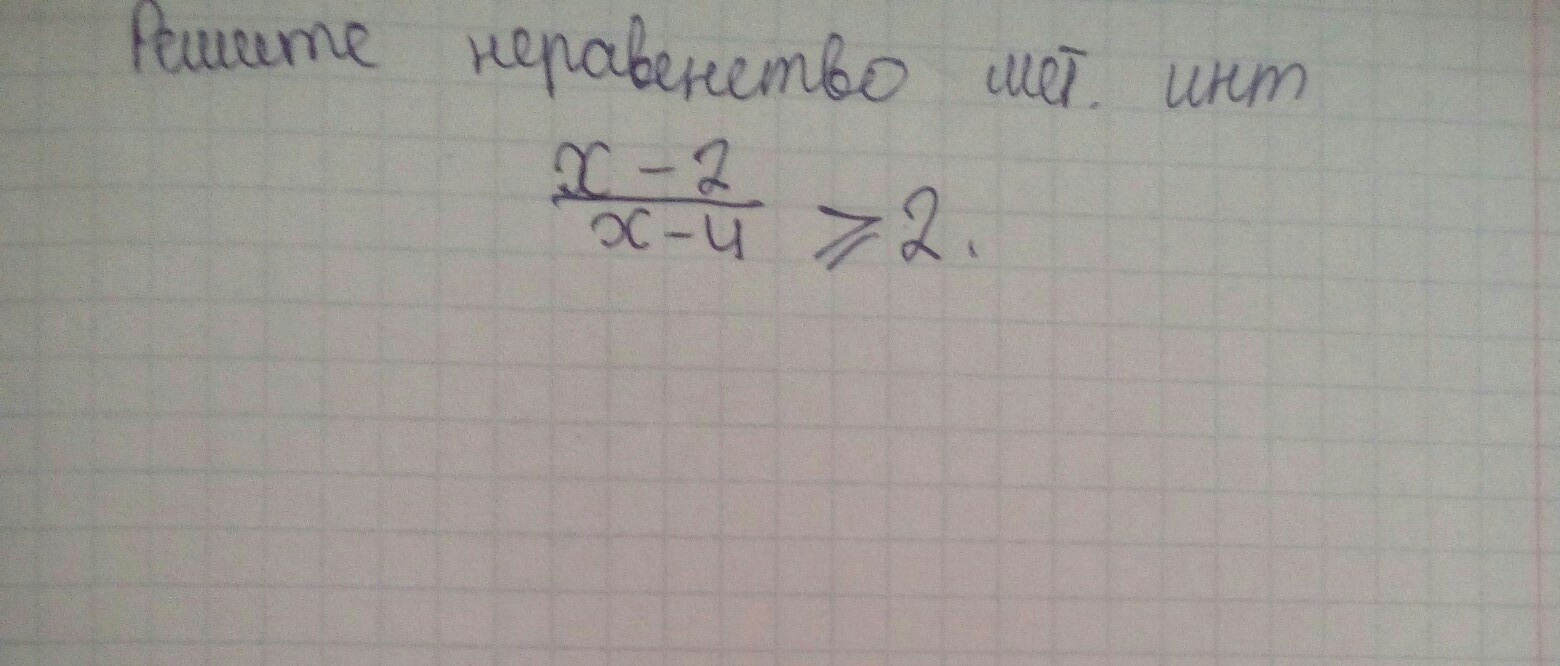 Решите неравенство мет. инт
x - 2
x - 4 ⩾ 2.